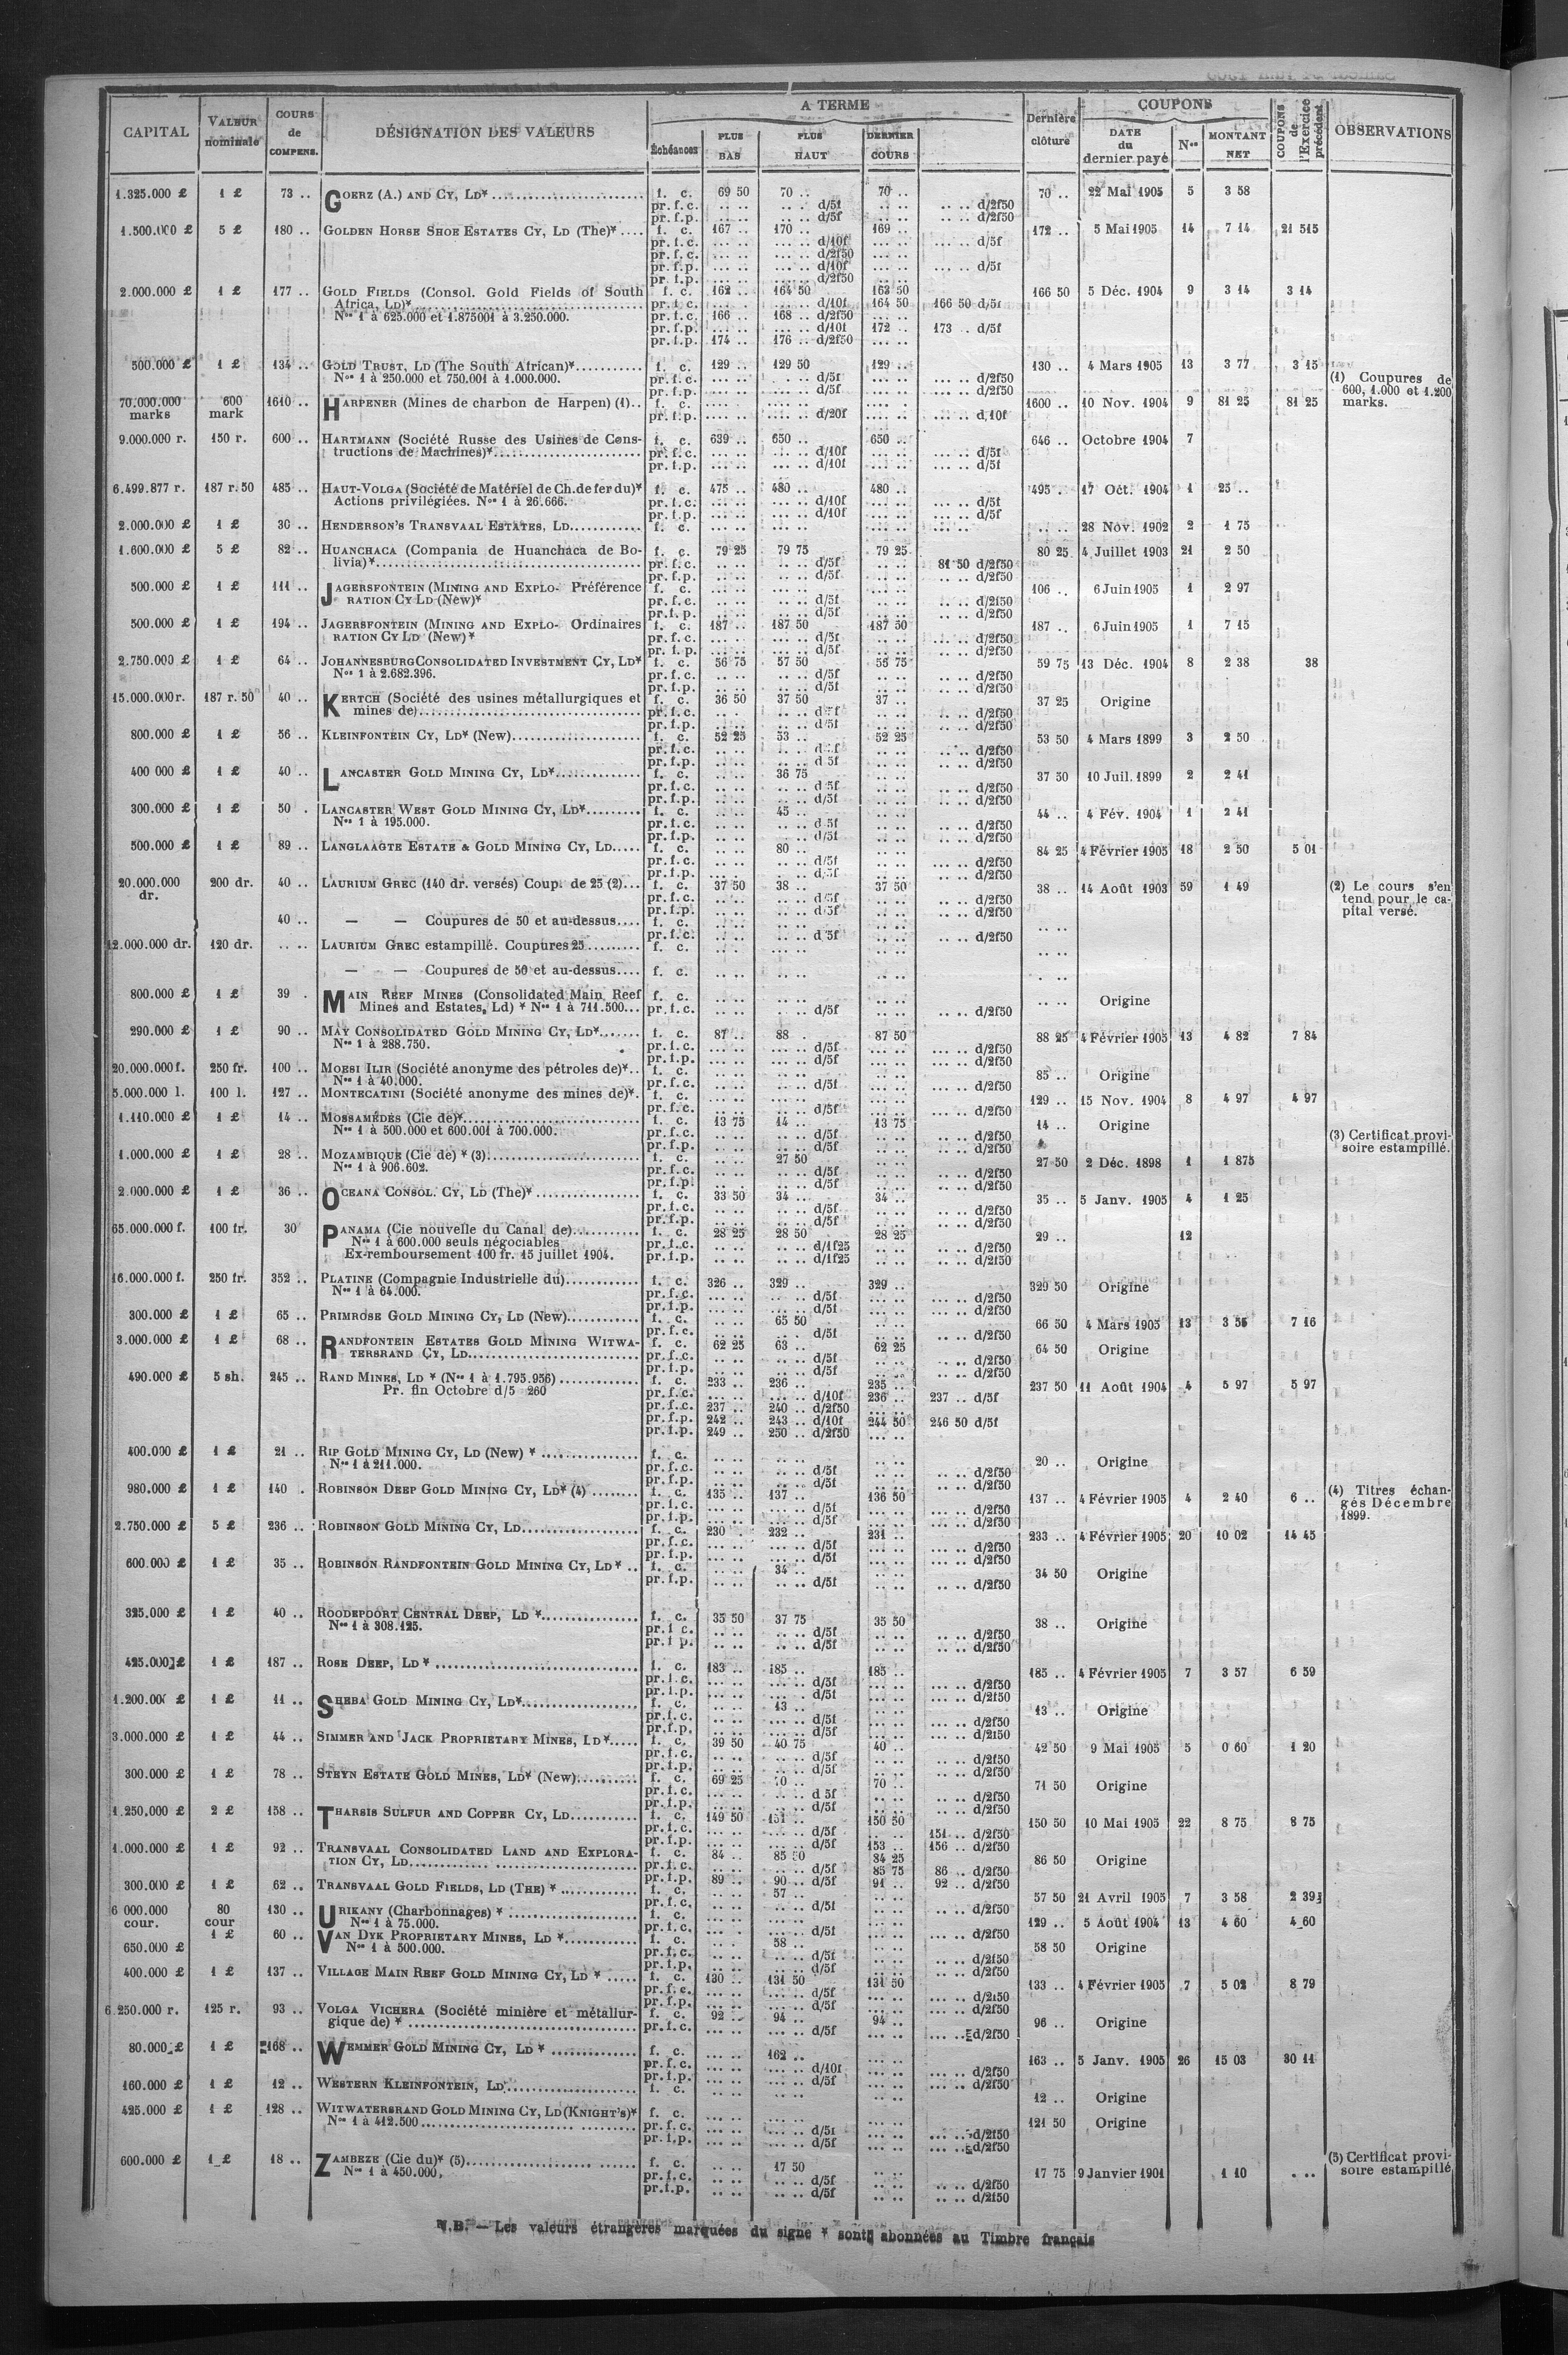 CAPITAL VALEUR nominale COURS de COMPENS. DÉSIGNATION DES VALEURS A TERME Échéances PLUS BAS PLUS HAUT DERNIER COURS Dernière clôture COUPONS DATE du dernier payé Nos MONTANT NET COUPONS de l'Exercice précédent OBSERVATIONS
1.325.000 £ 1 £ 73 .. GOERZ (A.) AND CY, LD* f. c. 69 50 70 .. 70 .. 70 .. 22 Mai 1905 5 3 58
pr. f. c. .. .. .. .. d/5f .. .. .. .. d/2f50
pr. f. p. .. .. .. .. d/5f .. .. .. .. d/2f50
1.500.000 £ 5 £ 180 .. GOLDEN HORSE SHOE ESTATES CY, LD (The)* f. c. 167 .. 170 .. 169 .. 172 .. 5 Mai 1905 14 7 14 21 515
pr. f. c. ... .. ... .. d/10f ... .. ... .. d/5f
pr. f. c. ... .. ... .. d/2f50 ... ..
pr. f. p. ... .. ... .. d/10f ... .. ... .. d/5f
pr. f. p. ... .. ... .. d/2f50
2.000.000 £ 1 £ 177 .. GOLD FIELDS (Consol. Gold Fields of South f. c. 162 .. 164 50 163 50 166 50 5 Déc. 1904 9 3 14 3 14
Africa, LD)* pr. f. c. ... .. ... .. d/10f 164 50 166 50 d/5f
Nos 1 à 625.000 et 1.875001 à 3.250.000. pr. f. c. 166 .. 168 .. d/2f50 ... ..
pr. f. p. ... .. ... .. d/10f 172 .. 173 .. d/5f
pr. f. p. 174 .. 176 .. d/2f50 ... ..
500.000 £ 1 £ 134 .. GOLD TRUST, LD (The South African)* f. c. 129 .. 129 50 129 .. 130 .. 4 Mars 1905 13 3 77 3 15
Nos 1 à 250.000 et 750.001 à 1.000.000. pr. f. c. ... .. ... .. d/5f ... .. ... .. d/2f50 (1) Coupures de
pr. f. p. ... .. ... .. d/5f ... .. ... .. d/2f50 600, 1.000 et 1.200
70.000.000 600 1610 .. HARPENER (Mines de charbon de Harpen) (1).. f. c. 1600 .. 10 Nov. 1904 9 81 25 81 25 marks.
marks mark pr. f. p. ... .. ... .. d/20f ... .. ... .. d,10f
9.000.000 r. 150 r. 600 .. HARTMANN (Société Russe des Usines de Cons- f. c. 639 .. 650 .. 650 .. 646 .. Octobre 1904 7
tructions de Machines)* pr. f. c. ... .. ... .. d/10f ... .. ... .. d/5f
pr. f. p. ... .. ... .. d/10f ... .. ... .. d/5f
6.499.877 r. 187 r. 50 485 .. HAUT-VOLGA (Société de Matériel de Ch. de fer du)* f. c. 475 .. 480 .. 480 .. 495 . 17 Oct. 1904 1 25 ..
Actions privilégiées. Nos 1 à 26.666. pr. f. c. ... .. ... .. d/10f ... .. ... .. d/5f
pr. f. p. ... .. ... .. d/10f ... .. ... .. d/5f
2.000.000 £ 1 £ 30 .. HENDERSON'S TRANSVAAL ESTATES, LD f. c. 28 Nov. 1902 2 1 75
1.600.000 £ 5 £ 82 .. HUANCHACA (Compania de Huanchaca de Bo- f. c. 79 25 79 75 79 25 80 25 4 Juillet 1903 21 2 50
livia)* pr. f. c. .. .. .. .. d/5f .. .. 81 50 d/2f50
pr. f. p. .. .. .. .. d/5f .. .. .. .. d/2f50
500.000 £ 1 £ 111 .. JAGERSFONTEIN (MINING AND EXPLO- Préférence f. c. 106 .. 6 Juin 1905 1 2 97
RATION CY LD (New)* pr. f. c. .. .. .. .. d/5f .. .. .. .. d/2f50
pr. f. p. .. .. .. .. d/5f .. .. .. .. d/2f50
500.000 £ 1 £ 194 .. JAGERSFONTEIN (MINING AND EXPLO- Ordinaires f. c. 187 .. 187 50 187 50 187 .. 6 Juin 1905 1 7 15
RATION CY LD (New)* pr. f. c. ... .. ... .. d/5f ... .. ... .. d/2f50
pr. f. p. ... .. ... .. d/5f ... .. ... .. d/2f50
2.750.000 £ 1 £ 64 .. JOHANNESBURG CONSOLIDATED INVESTMENT CY, LD* f. c. 56 75 57 50 56 75 59 75 13 Déc. 1904 8 2 38 38
Nos 1 à 2.682.396. pr. f. c. .. .. .. .. d/5f .. .. .. .. d/2f50
pr. f. p. .. .. .. .. d/5f .. .. .. .. d/2f50
15.000.000 r. 187 r. 50 40 .. KERTCH (Société des usines métallurgiques et f. c. 36 50 37 50 37 .. 37 25 Origine
mines de) pr. f. c. .. .. .. .. d 5f .. .. .. .. d/2f50
pr. f. p. .. .. .. .. d/5f .. .. .. .. d/2f50
800.000 £ 1 £ 56 .. KLEINFONTEIN CY, LD* (New) f. c. 52 25 53 .. 52 25 53 50 4 Mars 1899 3 2 50
pr. f. c. .. .. .. .. d 5f .. .. .. .. d/2f50
pr. f. p. .. .. .. .. d 5f .. .. .. .. d/2f50
400 000 £ 1 £ 40 .. LANCASTER GOLD MINING CY, LD* f. c. .. .. 36 75 .. .. 37 50 10 Juil. 1899 2 2 41
pr. f. c. .. .. .. .. d 5f .. .. .. .. d/2f50
pr. f. p. .. .. .. .. d/5f .. .. .. .. d/2f50
300.000 £ 1 £ 50 . LANCASTER WEST GOLD MINING CY, LD* f. c. .. .. 45 .. .. .. 44 .. 4 Fév. 1904 1 2 41
Nos 1 à 195.000. pr. f. c. .. .. .. .. d 5f .. .. .. .. d/2f50
pr. f. p. .. .. .. .. d/5f .. .. .. .. d/2f50
500.000 £ 1 £ 89 .. LANGLAAGTE ESTATE & GOLD MINING CY, LD f. c. .. .. 80 .. .. .. 84 25 4 Février 1905 18 2 50 5 01
pr. f. c. .. .. .. .. d/5f .. .. ... .. d/2f50
pr. f. p. .. .. .. .. d/5f .. .. ... .. d/2f50
20.000.000 200 dr. 40 .. LAURIUM GREC (140 dr. versés) Coup. de 25 (2) f. c. 37 50 38 .. 37 50 38 .. 14 Août 1903 59 1 49 (2) Le cours s'en
dr. pr. f. c. .. .. .. .. d/5f .. .. .. .. d/2f50 tend pour le ca-
pr. f. p. .. .. .. .. d/5f .. .. .. .. d/2f50 pital versé.
40 .. — — Coupures de 50 et au-dessus f. c.
pr. f. c. .. .. .. .. d 5f .. .. .. .. d/2f50
12.000.000 dr. 120 dr. .. .. LAURIUM GREC estampillé. Coupures 25 f. c.
— — Coupures de 50 et au-dessus f. c.
800.000 £ 1 £ 39 . MAIN REEF MINES (Consolidated Main Reef f. c. .. .. Origine
Mines and Estates, Ld) * Nos 1 à 711.500 pr. f. c. .. .. .. .. d/5f .. .. .. .. d/2f50
290.000 £ 1 £ 90 .. MAY CONSOLIDATED GOLD MINING CY, LD* f. c. 87 .. 88 . 87 50 88 25 4 Février 1905 13 4 82 7 84
Nos 1 à 288.750. pr. f. c. ... .. ... .. d/5f ... .. ... .. d/2f50
pr. f. p. ... .. ... .. d/5f ... .. ... .. d/2f50
20.000.000 f. 250 fr. 100 .. MOESI ILIR (Société anonyme des pétroles de)* f. c. 85 .. Origine
Nos 1 à 40.000. pr. f. c. ... .. ... .. d/5f ... .. ... .. d/2f50
5.000.000 l. 100 l. 127 .. MONTECATINI (Société anonyme des mines de)* f. c. 129 .. 15 Nov. 1904 8 4 97 4 97
pr. f. c. .. .. .. .. d/5f .. .. .. .. d/2f50
1.110.000 £ 1 £ 14 .. MOSSAMÉDÈS (Cie de)* f. c. 13 75 14 .. 13 75 14 .. Origine
Nos 1 à 500.000 et 600.001 à 700.000. pr. f. c. .. .. .. .. d/5f .. .. .. .. d/2f50 (3) Certificat provi-
pr. f. p. .. .. .. .. d/5f .. .. .. .. d/2f50 soire estampillé.
1.000.000 £ 1 £ 28 .. MOZAMBIQUE (Cie de) * (3) f. c. .. .. 27 50 .. .. 27 50 2 Déc. 1898 1 1 875
Nos 1 à 906.602. pr. f. c. .. .. .. .. d/5f .. .. .. .. d/2f50
pr. f. p. .. .. .. .. d/5f .. .. .. .. d/2f50
2.000.000 £ 1 £ 36 .. OCEANA CONSOL. CY, LD (The)* f. c. 33 50 34 .. 34 .. 35 .. 5 Janv. 1905 4 1 25
pr. f. c. .. .. .. .. d/5f .. .. .. .. d/2f50
pr. f. p. .. .. .. .. d/5f .. .. .. .. d/2f50
65.000.000 f. 100 fr. 30 PANAMA (Cie nouvelle du Canal de) f. c. 28 25 28 50 28 25 29 .. 12
Nos 1 à 600.000 seuls négociables pr. f. c. .. .. .. .. d/1f25 .. .. .. .. d/2f50
Ex-remboursement 100 fr. 15 juillet 1904. pr. f. p. .. .. .. .. d/1f25 .. .. .. .. d/2f50
16.000.000 f. 250 fr. 352 .. PLATINE (Compagnie Industrielle du) f. c. 326 .. 329 .. 329 .. 329 50 Origine
Nos 1 à 64.000. pr. f. c. ... .. ... .. d/5f ... .. ... .. d/2f50
pr. f. p. ... .. ... .. d/5f ... .. ... .. d/2f50
300.000 £ 1 £ 65 .. PRIMROSE GOLD MINING CY, LD (New) f. c. .. .. 65 50 .. .. 66 50 4 Mars 1905 13 3 55 7 16
pr. f. c. .. .. .. .. d/5f .. .. .. .. d/2f50
3.000.000 £ 1 £ 68 .. RANDFONTEIN ESTATES GOLD MINING WITWA- f. c. 62 25 63 .. 62 25 64 50 Origine
TERSRAND CY, LD pr. f. c. .. .. .. .. d/5f .. .. .. .. d/2f50
pr. f. p. .. .. .. .. d/5f .. .. .. .. d/2f50
490.000 £ 5 sh. 245 .. RAND MINES, LD * (Nos 1 à 1.795.956) f. c. 233 .. 236 .. 235 .. 237 50 11 Août 1904 4 5 97 5 97
Pr. fin Octobre d/5 260 pr. f. c. ... .. ... .. d/10f 236 .. 237 .. d/5f
pr. f. c. 237 .. 240 .. d/2f50 ... ..
pr. f. p. 242 .. 243 .. d/10f 244 50 246 50 d/5f
pr. f. p. 249 .. 250 .. d/2f50 ... ..
400.000 £ 1 £ 21 .. RIP GOLD MINING CY, LD (New) * f. c. 20 .. Origine
Nos 1 à 211.000. pr. f. c. .. .. .. .. d/5f .. .. .. .. d/2f50
pr. f. p. .. .. .. .. d/5f .. .. .. .. d/2f50
980.000 £ 1 £ 140 . ROBINSON DEEP GOLD MINING CY, LD* (4) f. c. 135 .. 137 .. 136 50 137 .. 4 Février 1905 4 2 40 6 .. (4) Titres échan-
pr. f. c. ... .. ... .. d/5f ... .. ... .. d/2f50 gés Décembre
pr. f. p. ... .. ... .. d/5f ... .. ... .. d/2f50 1899.
2.750.000 £ 5 £ 236 .. ROBINSON GOLD MINING CY, LD f. c. 230 . 232 .. 231 .. 233 .. 4 Février 1905 20 10 02 14 45
pr. f. c. ... .. ... .. d/5f ... .. ... .. d/2f50
pr. f. p. ... .. ... .. d/5f ... .. ... .. d/2f50
600.000 £ 1 £ 35 .. ROBINSON RANDFONTEIN GOLD MINING CY, LD * f. c. .. .. 34 .. .. .. 34 50 Origine
pr. f. p. .. .. .. .. d/5f .. .. .. .. d/2f50
325.000 £ 1 £ 40 .. ROODEPOORT CENTRAL DEEP, LD * f. c. 35 50 37 75 35 50 38 .. Origine
Nos 1 à 308.125. pr. f. c. .. .. .. .. d/5f .. .. .. .. d/2f50
pr. f. p. .. .. .. .. d/5f .. .. .. .. d/2f50
425.000 £ 1 £ 187 .. ROSE DEEP, LD * f. c. 183 .. 185 .. 185 .. 185 .. 4 Février 1905 7 3 57 6 59
pr. f. c. ... .. ... .. d/5f ... .. ... .. d/2f50
pr. f. p. ... .. ... .. d/5f ... .. ... .. d/2f50
1.200.000 £ 1 £ 11 .. SHEBA GOLD MINING CY, LD* f. c. .. .. 13 .. .. .. 13 .. Origine
pr. f. c. ... .. ... .. d/5f ... .. ... .. d/2f50
pr. f. p. ... .. ... .. d/5f ... .. ... .. d/2f50
3.000.000 £ 1 £ 44 .. SIMMER AND JACK PROPRIETARY MINES, LD* f. c. 39 50 40 75 40 .. 42 50 9 Mai 1905 5 0 60 1 20
pr. f. c. .. .. .. .. d/5f .. .. .. .. d/2f50
pr. f. p. .. .. .. .. d/5f .. .. .. .. d/2f50
300.000 £ 1 £ 78 .. STEYN ESTATE GOLD MINES, LD* (New) f. c. 69 25 70 .. 70 .. 71 50 Origine
pr. f. c. .. .. .. .. d 5f .. .. .. .. d/2f50
pr. f. p. .. .. .. .. d/5f .. .. .. .. d/2f50
1.250.000 £ 2 £ 158 .. THARSIS SULFUR AND COPPER CY, LD f. c. 149 50 151 .. 150 50 150 50 10 Mai 1905 22 8 75 8 75
pr. f. c. ... .. ... .. d/5f ... .. 151 .. d/2f50
pr. f. p. ... .. ... .. d/5f 153 .. 156 .. d/2f50
1.000.000 £ 1 £ 92 .. TRANSVAAL CONSOLIDATED LAND AND EXPLORA- f. c. 84 .. 85 50 84 25 86 50 Origine
TION CY, LD pr. f. c. .. .. .. .. d/5f 85 75 86 .. d/2f50
pr. f. p. 89 .. 90 .. d/5f 91 .. 92 .. d/2f50
300.000 £ 1 £ 62 .. TRANSVAAL GOLD FIELDS, LD (THE) * f. c. .. .. 57 .. .. .. 57 50 21 Avril 1905 7 3 58 2 39
pr. f. c. .. .. .. .. d/5f .. .. .. .. d/2f50
6 000.000 80 130 .. URIKANY (Charbonnages) * f. c. 129 .. 5 Août 1904 13 4 60 4 60
cour. cour Nos 1 à 75.000. pr. f. c. ... .. ... .. d/5f ... .. ... .. d/2f50
650.000 £ 1 £ 60 .. VAN DYK PROPRIETARY MINES, LD * f. c. .. .. 58 .. .. .. 58 50 Origine
Nos 1 à 500.000. pr. f. c. .. .. .. .. d/5f .. .. .. .. d/2f50
pr. f. p. .. .. .. .. d/5f .. .. .. .. d/2f50
400.000 £ 1 £ 137 .. VILLAGE MAIN REEF GOLD MINING CY, LD * f. c. 130 .. 131 50 131 50 133 .. 4 Février 1905 7 5 02 8 79
pr. f. c. ... .. ... .. d/5f ... .. ... .. d/2f50
pr. f. p. ... .. ... .. d/5f ... .. ... .. d/2f50
6.250.000 r. 125 r. 93 .. VOLGA VICHERA (Société minière et métallur- f. c. 92 .. 94 .. 94 .. 96 .. Origine
gique de) * pr. f. c. ... .. ... .. d/5f ... .. ... .. d/2f50
80.000 £ 1 £ 168 .. WEMMER GOLD MINING CY, LD * f. c. ... .. 162 .. ... .. 163 .. 5 Janv. 1905 26 15 03 30 11
pr. f. c. ... .. ... .. d/10f ... .. ... .. d/2f50
pr. f. p. ... .. ... .. d/5f ... .. ... .. d/2f50
160.000 £ 1 £ 12 .. WESTERN KLEINFONTEIN, LD f. c. 12 .. Origine
425.000 £ 1 £ 128 .. WITWATERSRAND GOLD MINING CY, LD (KNIGHT'S)* f. c. 121 50 Origine
Nos 1 à 412.500 pr. f. c. ... .. ... .. d/5f ... .. ... .. d/2f50
pr. f. p. ... .. ... .. d/5f ... .. ... .. d/2f50
600.000 £ 1 £ 18 .. ZAMBEZE (Cie du)* (5) f. c. .. .. 17 50 .. .. 17 75 9 Janvier 1901 1 10 . .. (5) Certificat provi-
Nos 1 à 450.000, pr. f. c. .. .. .. .. d/5f .. .. .. .. d/2f50 soire estampillé
pr. f. p. .. .. .. .. d/5f .. .. .. .. d/2f50
N.B. — Les valeurs étrangères marquées du signe * sont abonnées au Timbre français